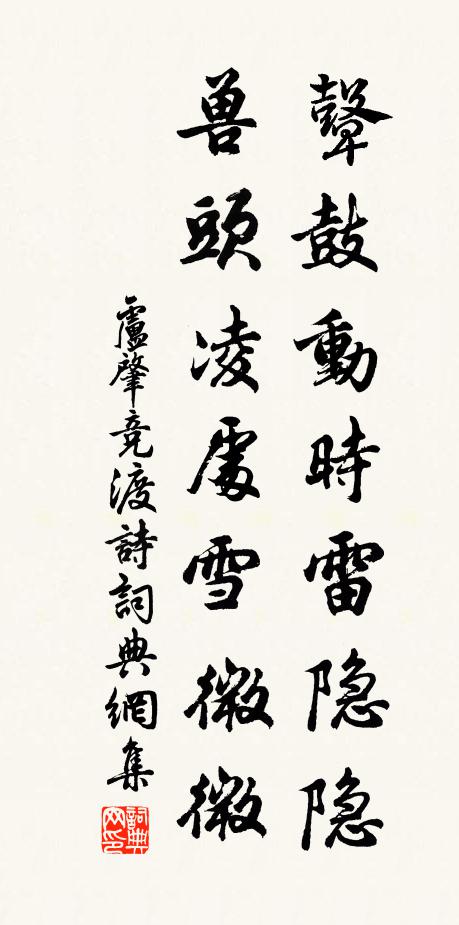 鼙鼓動時雷隐隐
兽頭凌處雪微微
盧肇競渡詩詞典網集
詞典网印